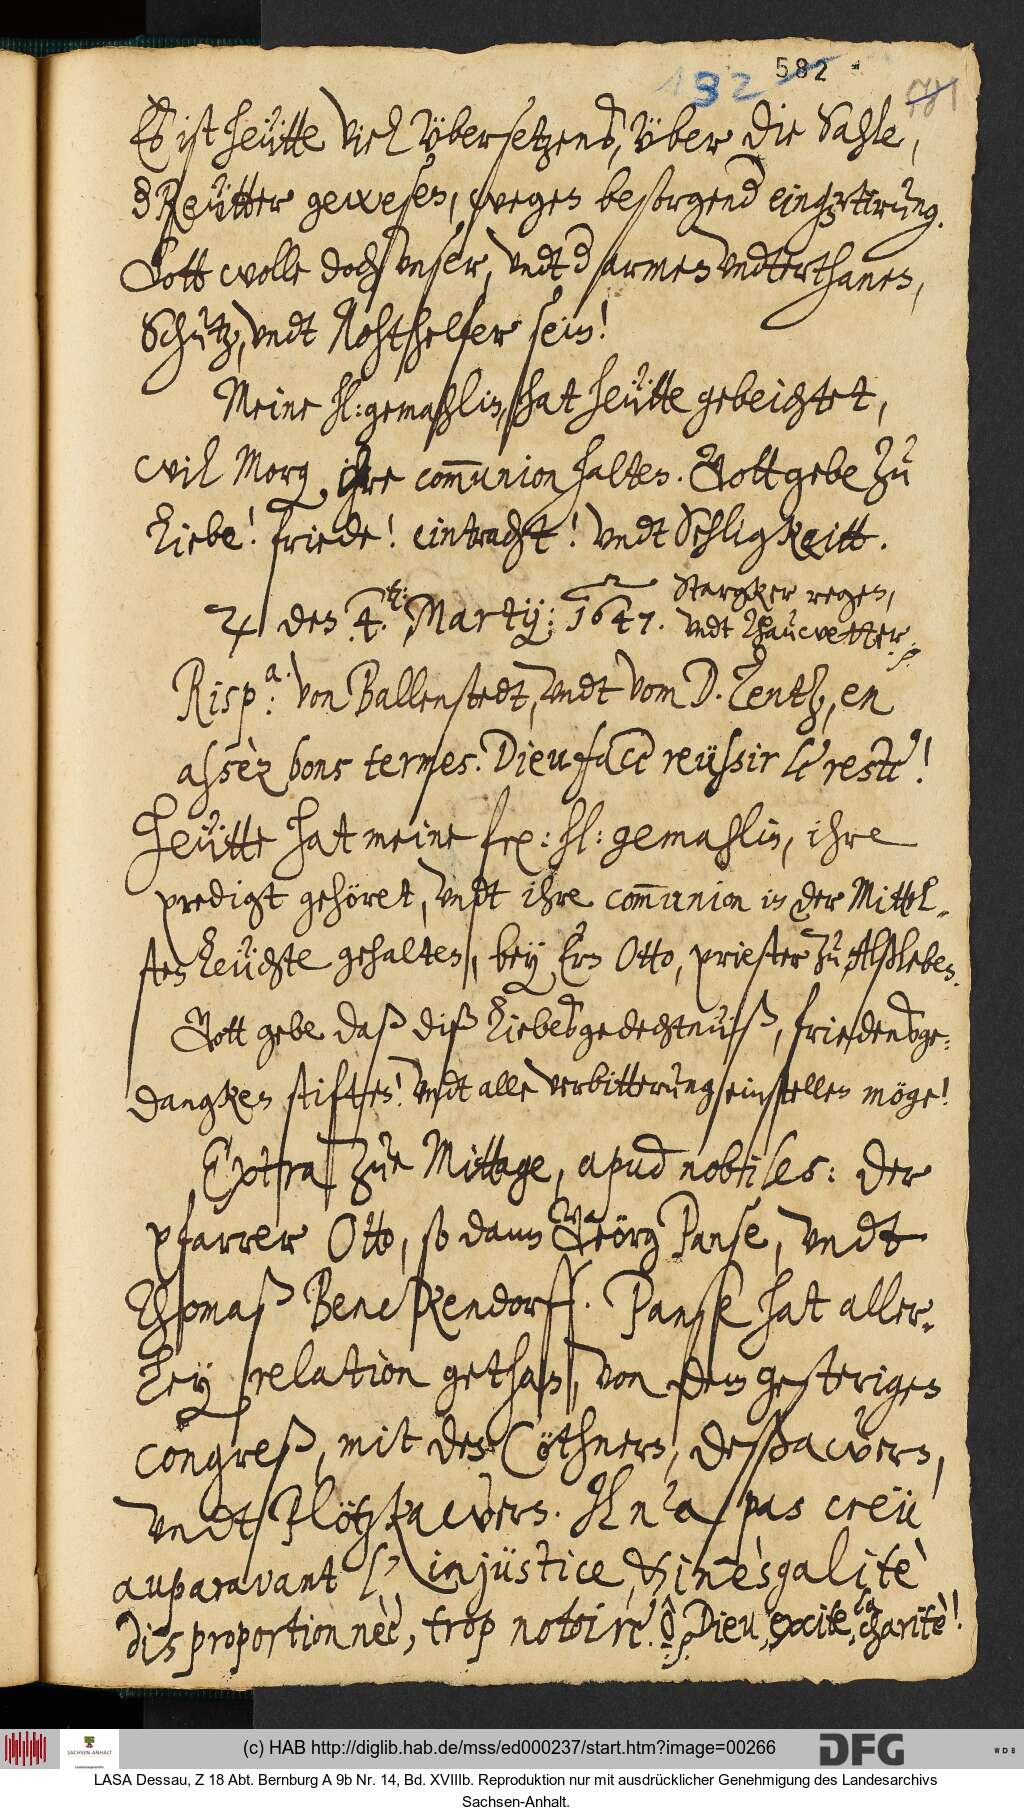 182 582 781
Es ist heütte viel Übersetzens, Über die Sahle,
d Reütter gewesen, wegen besorgend einq%artirung.
Gott wolle doch unser, undt d armen Undterthanen,
Schutz, undt Nohthelfer sein!
Meine hl: gemahlin, hat heütte gebeichtet,
will Morg ihre com̄union halten. Gott gebe zu
Liebe! friede! eintracht! undt Sehligkeitt.
♃ des 4. Martij: 1647. Stargker regen,
undt Thauwetter.
Risp.a: von Ballenstedt, undt vom D. Lentz, en
assèz bons termes. Dieu face reüssir le reste!
Heütte hat meine fr: hl: gemahlin, ihre
predigt gehöret, undt ihre com̄union in der Mittel-
sten Leüchte gehalten, bey Ern Otto, priester zu Alßleben.
Gott gebe daß diß Liebesgedechtnüß, friedensge-
dangken stiften! undt alle verbitterung einstellen möge!
Extra zur Mittage, apud nobiles: der
pfarrer Otto, so dann Geörg Panse, undt
Thomaß Benckendorff. Panse hat aller-
ley relation gethan, von dem gesterigen
congreß, mit den Cöthnern, Deßawern,
undt Plötzkawern. Il n'a pas creü
auparavant l'injüstice, & inèsgalitè
disproportionnèe, trop notoire. ô Dieu, excite, la charitè!
(c) HAB http://diglib.hab.de/mss/ed000237/start.htm?image=00266
SACHSEN-ANHALT
DFG
WDB
LASA Dessau, Z 18 Abt. Bernburg A 9b Nr. 14, Bd. XVIIIb. Reproduktion nur mit ausdrücklicher Genehmigung des Landesarchivs
Sachsen-Anhalt.